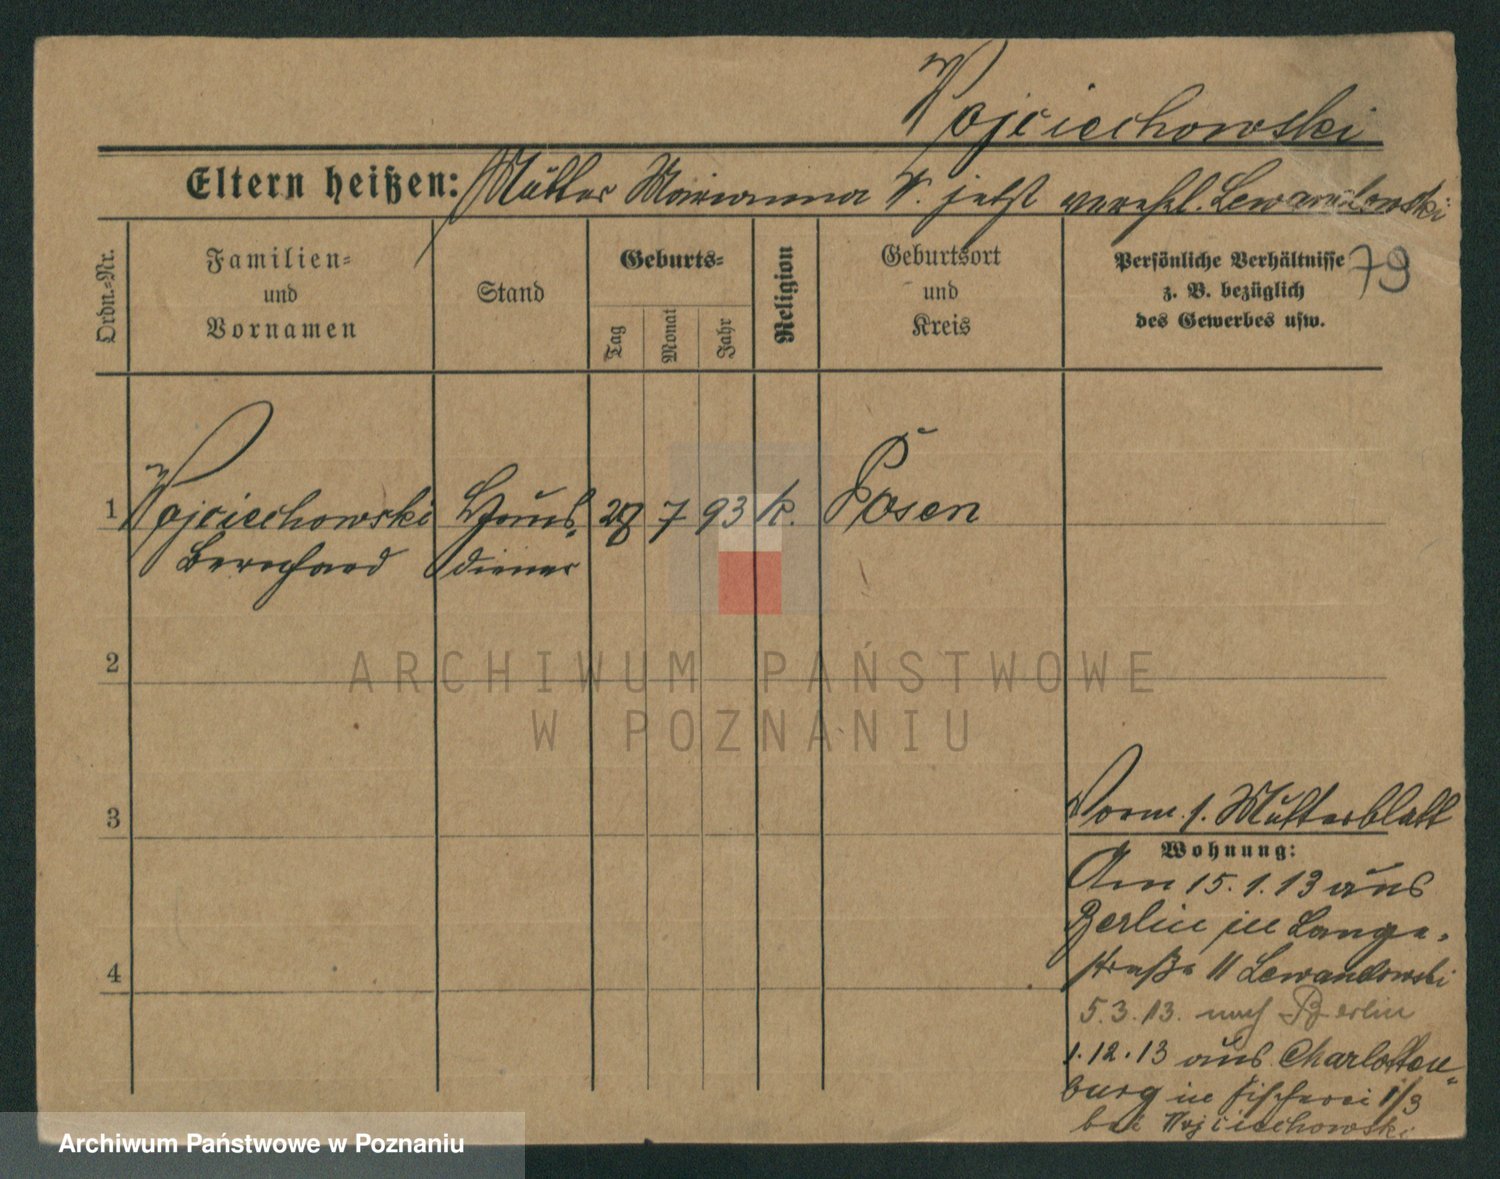 Wojciechowski
Eltern heißen: Mutter Marianna W. jetzt verehl. Lewandowski
Ordn.-Nr.
Familien-
und
Vornamen
Stand
Geburts-
Tag
Monat
Jahr
Religion
Geburtsort
und
Kreis
Persönliche Verhältnisse
z. B. bezüglich
des Gewerbes usw.
79
1 Wojciechowski Haus- 28 7 93 k. Posen
Bernhard diener
2
3
4
ARCHIWUM PAŃSTWOWE
W POZNANIU
Vorm. s. Mutterblatt
Wohnung:
Am 15.1.13 aus
Berlin in Lange-
straße 11 Lewandowski
5.3.13. nach Berlin
1.12.13 aus Charlotten-
burg in Fischerei 1/3
bei Wojciechowski
Archiwum Państwowe w Poznaniu